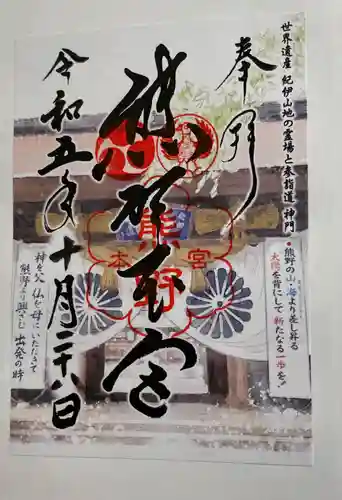 世界遺産 紀伊山地の霊場と参詣道 神門
熊野の山・海より差し昇る
太陽を背にして 新たなる一歩を!
奉拝
熊野本宮
熊野
本宮
令和五年十月二十八日
神を父 仏を母にいただきて
熊野より興さむ 出発の時